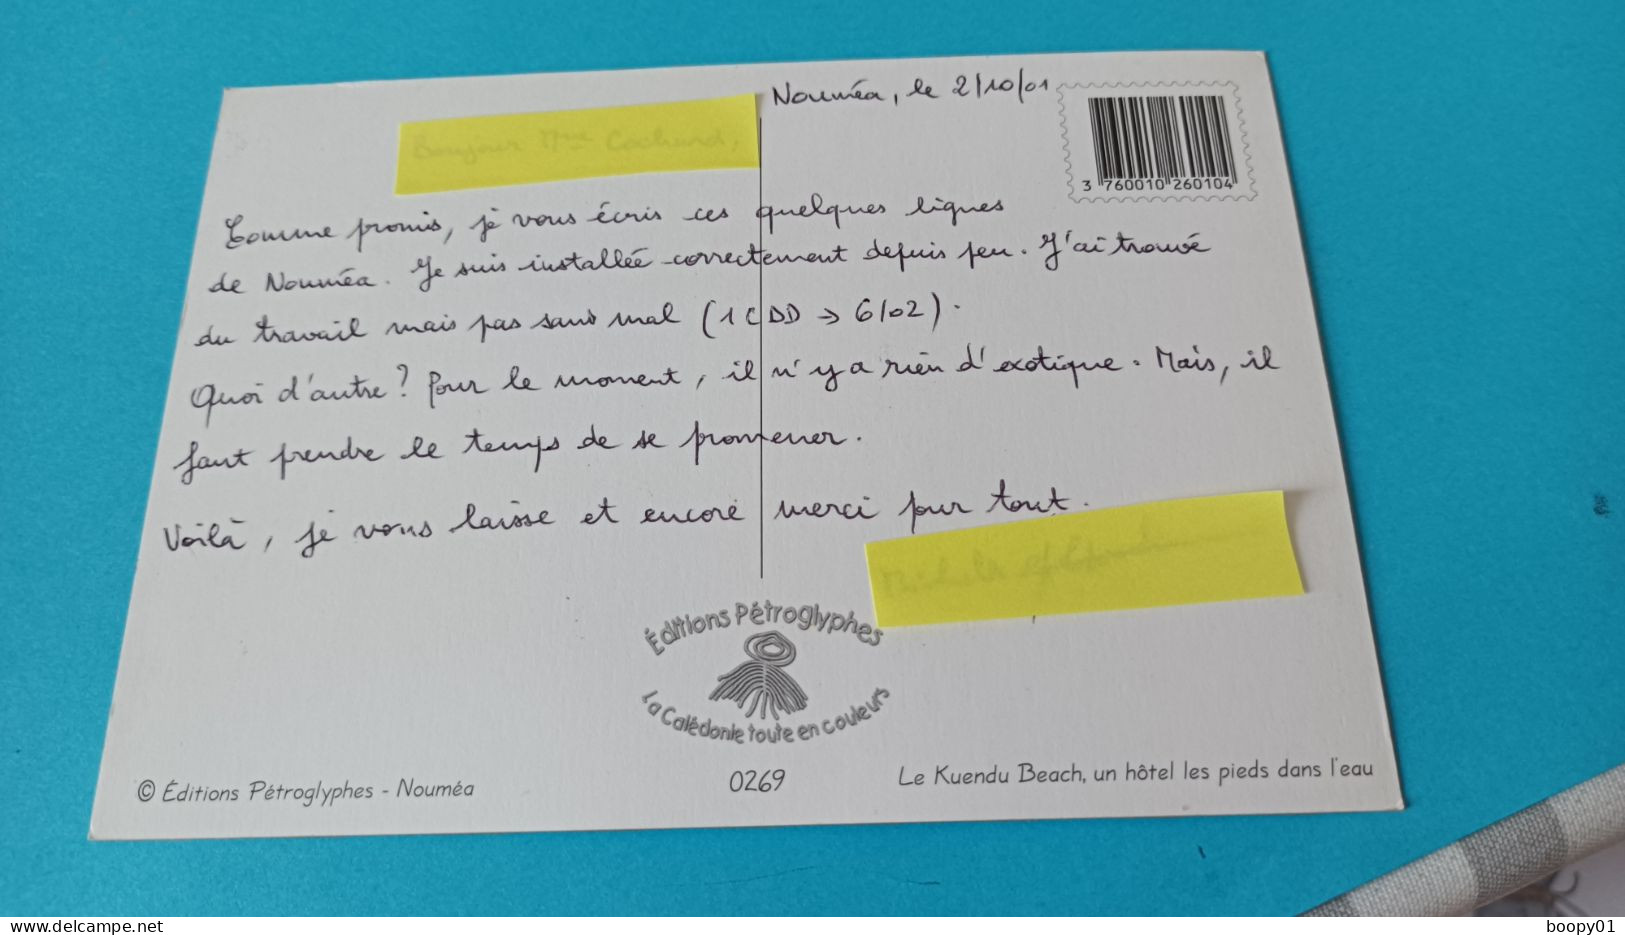 Nouméa, le 2/10/01
3 760010 260104
Bonjour Mme
Comme promis, je vous écris ces quelques lignes
de Nouméa. Je suis installée correctement depuis peu. J'ai trouvé
du travail mais pas sans mal (1 CDD → 6/02).
Quoi d'autre? Pour le moment, il n'y a rien d'exotique. Mais, il
faut prendre le temps de se promener.
Voilà, je vous laisse et encore merci pour tout.
Éditions Pétroglyphes
La Calédonie toute en couleurs
© Éditions Pétroglyphes - Nouméa
0269
Le Kuendu Beach, un hôtel les pieds dans l'eau
www.delcampe.net
boopy01